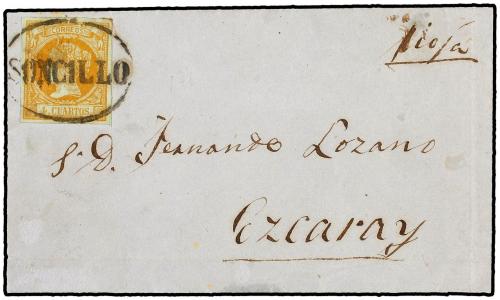 CORREOS
SONCILLO
4 CUARTOS
Rioja
S. D. Fernando Lozano
Ezcaray